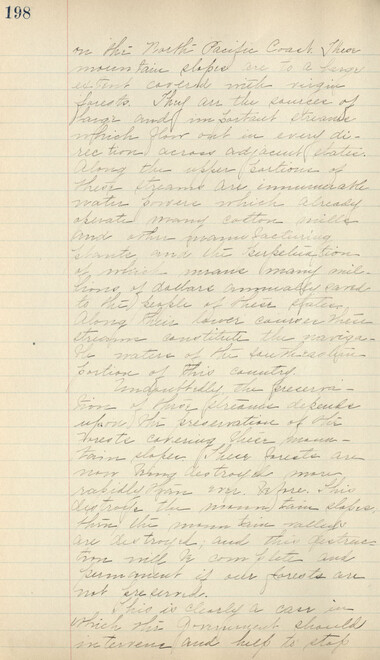 198
on the North Pacific Coast. Their
mountain slopes are to a large
extent covered with virgin
forests. They are the sources of
large and important streams
which flow out in every di-
rection across adjacent states.
Along the upper portions of
these streams are innumerable
water powers which already
operate many cotton mills
and other manufacturing
plants, and the perpetuation
of which means many mil-
lions of dollars annually saved
to the people of these states.
Along their lower courses these
streams constitute the naviga-
ble waters of the southeastern
portion of this country.
Undoubtedly the preserva-
tion of these streams depends
upon the preservation of the
forests covering their moun-
tain slopes. These forests are
now being destroyed more
rapidly than ever before. This
destroys the mountain slopes,
then the mountain valleys
are destroyed; and this destruc-
tion will be complete and
permanent if our forests are
not preserved.
This is clearly a case in
which the Government should
intervene and help to stop